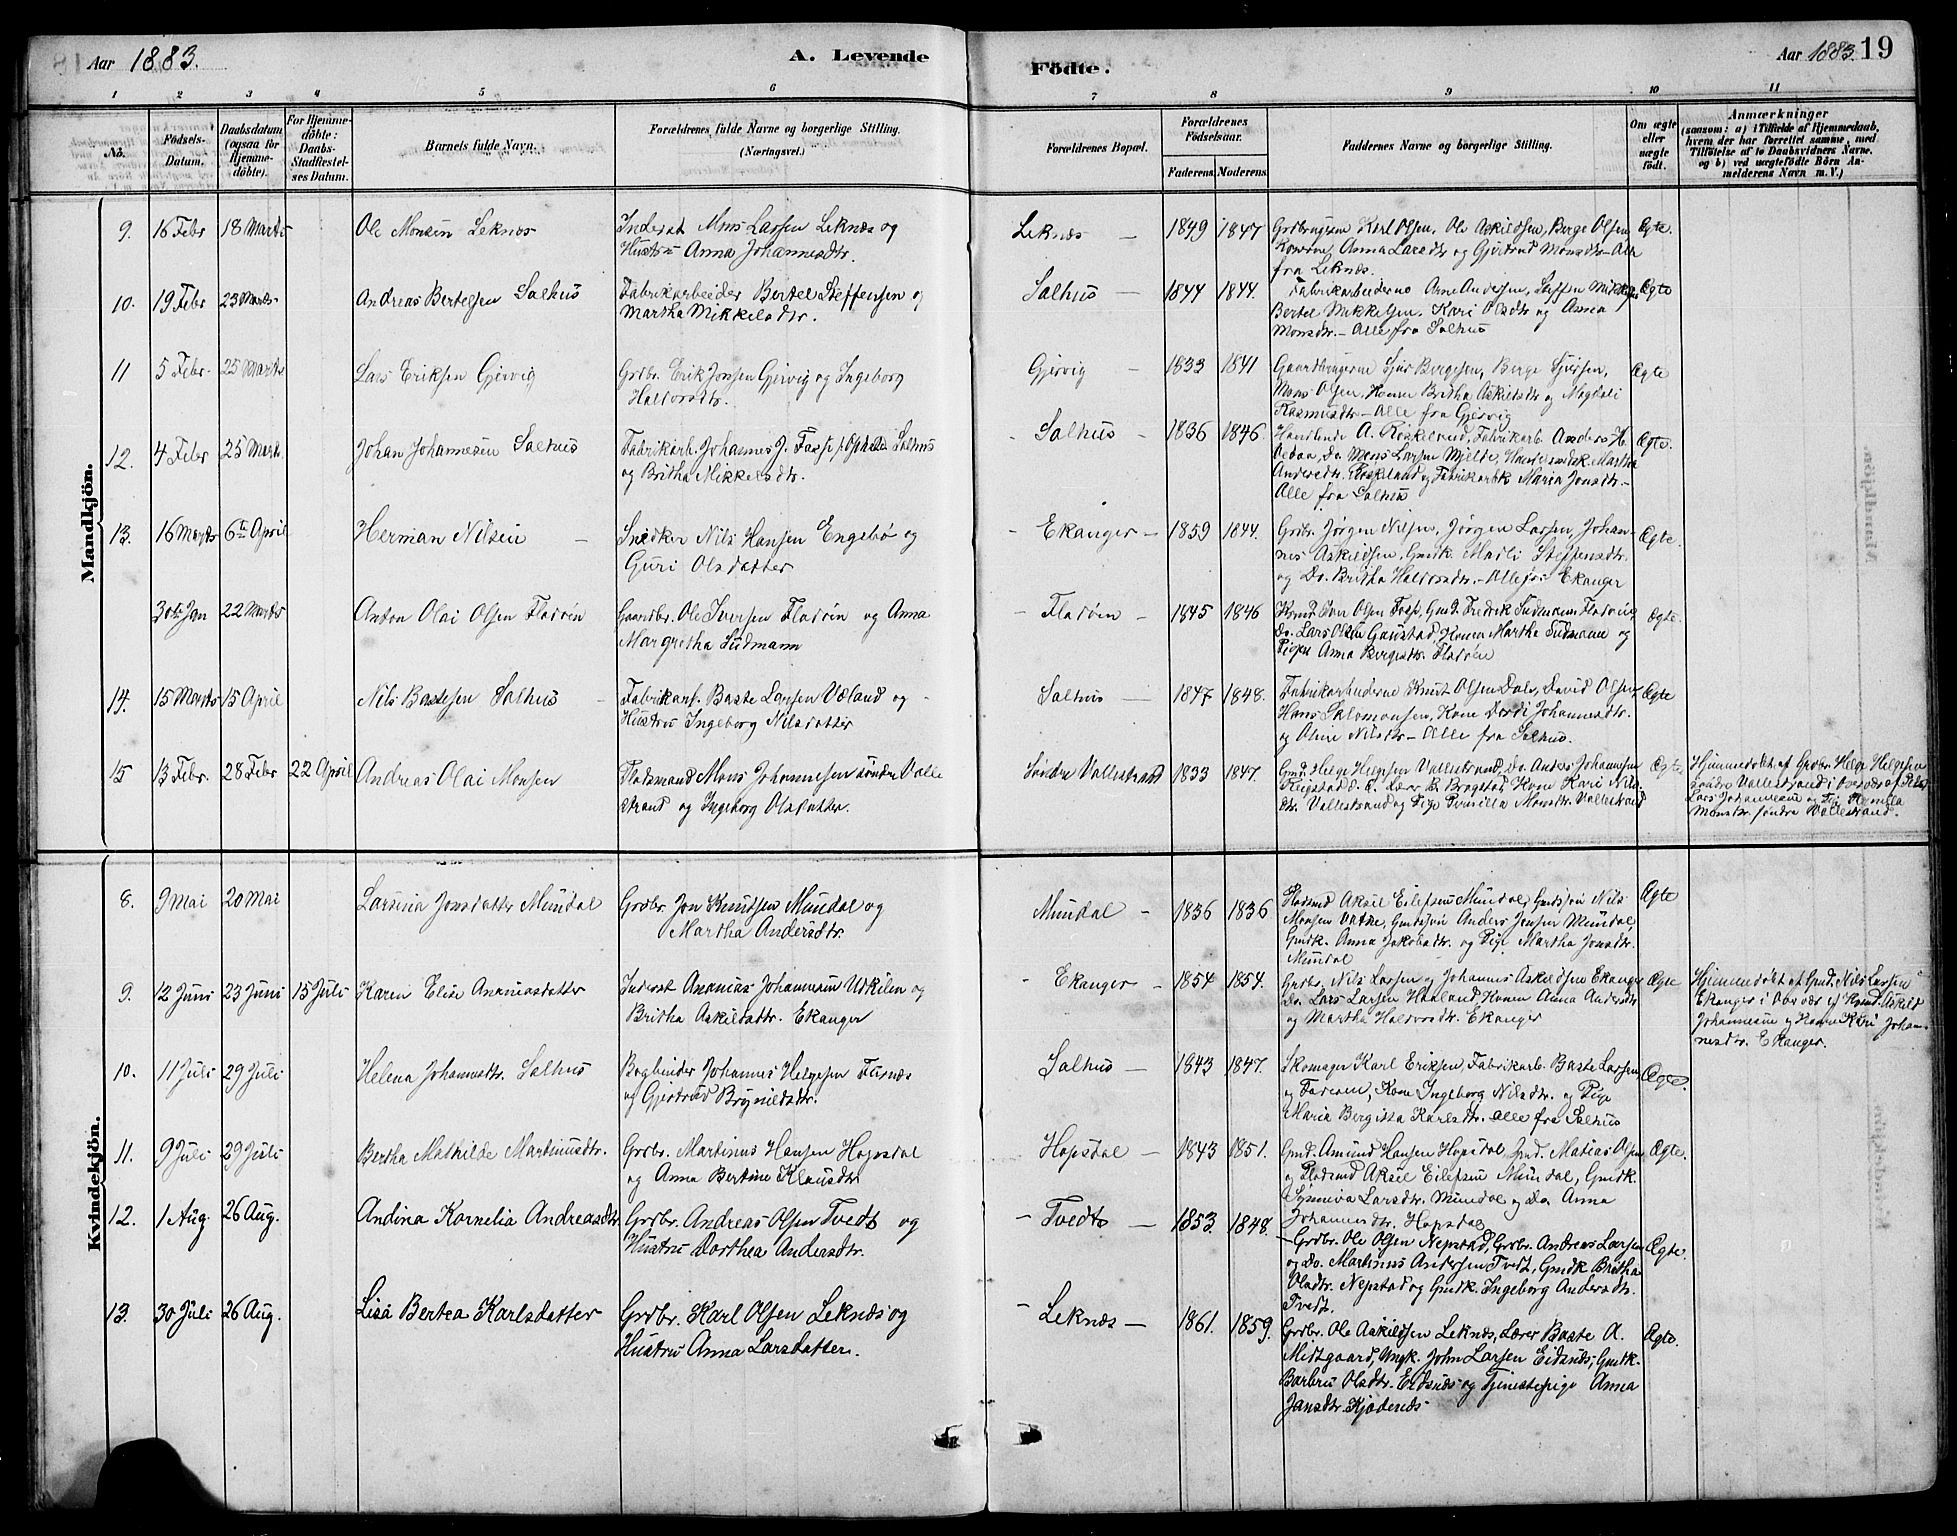 Aar 1883. A. Levende Födte. Aar 1883. 19
1 2 3 4 5 6 7 8 9 10 11
No. Födsels-Datum. Daabsdatum (ogsaa for Hjemme-döbte). For Hjemme-döbte: Daabs-Stadfæstel-ses Datum. Barnets fulde Navn. Forældrenes fulde Navne og borgerlige Stilling. (Næringsvei.) Forældrenes Bopæl. Forældrenes Födselsaar. Faderens. Moderens. Faddernes Navne og borgerlige Stilling. Om ægte eller uægte födt. Anmærkninger (saasom: a) i Tilfælde af Hjemmedaab, hvem der har forrettet samme, med Tilföielse af to Daabsvidners Navne, og b) ved uægtefödte Börn An-melderens Navn m. V.)
Mandkjön.
9. 16 Febr 18 Marts Ole Monsen Leknæs Inderst Mons Larsen Leknæs og Leknæs 1849 1847 Grdbrugerne Karl Olsen, Ole Askildsen, Berge Olsen Ægte.
Hustru Anna Johannesdtr. Konerne, Anna Larsdtr og Gjertrud Monsdtr - Alle
fra Leknæs.
10. 19 Febr 23 Marts Andreas Bertelsen Salhus Fabrikarbeider Bertel Steffensen og Salhus 1844 1844. Fabrikarbeiderne Arne Andersen, Steffen Mikkelsen Ægte
Martha Mikkelsdtr. Bertel Mikkelsen, Kari Olsdtr og Anna
Monsdtr. - Alle fra Salhus
11 5 Febr. 25 Marts Lars Eriksen Gjervig Grdbr. Erik Jonsen Gjervig og Ingeborg Gjervig 1833 1841 Gaardbrugerne Sjur Bergesen, Berge Sjursen, Ægte
Haldorsdtr. Mons Olsen, Konerne Britha Askildsdtr og Magdeli
Rasmusdtr - Alle fra Gjervig
12. 4 Febr 25 Marts. Johan Johannesen Salhus Fabrikarb. Johannes J. Salhus Salhus 1836 1846. Handlende A. Röskeland, Fabrikarb. Anders H. Ægte.
og Britha Mikkelsdtr. Do. Mons Larsen Mjelde, Martha
Andersdtr. Röskeland og Fabrikarbk Maria Jonsdtr. -
Alle fra Salhus
13. 16 Marts 6te April Herman Nilsen Snedker Nils Hansen Engebö og Ekanger 1859 1844. Grdbr. Jörgen Nilsen, Jörgen Larsen, Johan- Ægte.
Guri Olsdatter nes Askildsen, Gmdk. Marli Steffensdtr.
og Do. Britha Haldorsdtr. - Alle fra Ekanger
30te Jan 22 Marts Anton Olai Olsen Fladöen Gaardbr. Ole Iversen Fladöen og Anna Fladöen 1845 1846 Iver Olsen Fosse, Gmd. Fredrik Sudmann Fladöen Ægte.
Margretha Sudmann Do. Lars Olsen Gaustad, Konen Martha Sudmann og
Pigen Anna Bergesdtr. Fladöen
14. 15 Marts 15 April Nils Bastesen Salhus Fabrikarb. Baste Larsen Væland og Salhus 1847 1848. Fabrikarbeiderne Knut Olsen Dale, David Olsen, Ægte
Hustru Ingeborg Nilsdatter Hans Salomonsen, Kone Dordi Johannesdtr.
og Oline Nilsdtr - Alle fra Salhus.
15 13 Febr. 28 Febr 22 April Andreas Olai Monsen Pladsmand Mons Johannesen söndre Valle Söndre Vallestrand 1833 1847. Gmd. Helge Helgesen Vallestrand, Do. Anders Johannesen Ægte Hjemmedöbt af Grdbr. Helge Helgesen
strand og Ingeborg Olsdatter. Reigstad, Lærer B. Brogstad, Kone Kari Nils- söndre Vallestrand i Overvær af
dtr. Vallestrand og Pige Pernilla Monsdtr. Vallestrand Lars Johannesen og Pige Pernilla
Monsdtr. söndre Vallestrand.
Kvindekjön.
8. 9 Mai 20 Mai Larsina Jonsdatter Mundal Grdbr. Jon Knutsen Mundal og Mundal 1836 1836 Pladsmd Aksel Eilefsen Mundal, Nils Ægte
Martha Andersdtr. Monsen Vatne, Anders Jensen Mundal,
Gmdk. Anna Jakobsdtr. og Pige Martha Jonsdtr.
Mundal
9. 12 Juni 23 Juni 15 Juli Karen Elise Ananiasdatter Inderst Ananias Johannesen Udkilen og Ekanger 1854 1854. Grdbr. Nils Larsen og Johannes Askildsen Ekanger Ægte Hjemmedöbt af Gmd. Nils Larsen
Britha Askildsdtr. Ekanger Do. Lars Larsen Haaland, Konen Anna Andersdtr Ekanger i Overvær af Askild
og Martha Haldorsdtr. Ekanger Johannesen og Konen Kari Johan-
nesdtr. Ekanger.
10. 11 Juli 29 Juli Helena Johannesdtr. Salhus Bogbinder Johannes Helgesen Furnæs Salhus 1843 1847. Skomager Karl Eriksen, Fabrikarb. Baste Larsen Ægte.
og Gjertrud Brynildsdtr. og Faderen, Kone Ingeborg Nilsdtr. og Pige
Maria Bergitta Karlsdtr. Alle fra Salhus
11. 9 Juli 29 Juli Bertha Mathilde Martinusdtr. Grdbr. Martinus Hansen Hopsdal Hopsdal 1843 1851. Gmd. Amund Hansen Hopsdal, Gmd. Matias Olsen Ægte.
og Anna Bertine Klausdtr og Pladsmd Aksel Eilefsen Mundal, Gmdk.
Synneva Larsdtr. Mundal og Do. Anna
Johannesdtr. Hopsdal
12. 1 Aug. 26 Aug. Andina Kornelia Andreasdtr Grdbr. Andreas Olsen Tvedt og Tvedt 1853. 1848. Grdbr. Ole Olsen Nepstad, Grdbr. Andreas Larsen Ægte.
Hustru Dorthea Andersdtr. og Do. Martinus Andersen Tvedt, Gmdk Britha
Olsdtr. Nepstad og Gmdk. Ingeborg Andersdtr.
Tvedt.
13. 30 Juli 26 Aug. Lisa Bertea Karlsdatter Grdbr. Karl Olsen Leknæs og Leknæs 1861. 1859. Grdbr. Ole Askildsen Leknæs, Lærer Baste A. Ægte
Hustru Anna Larsdatter. Midtgaard, Ungk. John Larsen Eidsnæs, Gmdk.
Barbru Olsdtr. Eidsnæs og Tjenestepige Anna
Jansdtr. Kjödenæs